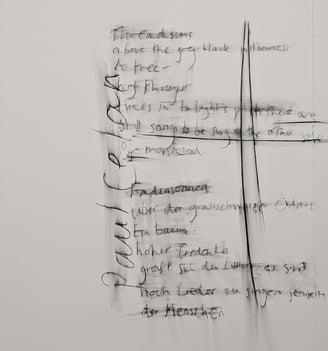 Threadsuns
above the grey-black wilderness.
A tree-
high thought
tunes in to light's pitch: there are
still songs to be sung on the other side
of mankind.
Fadensonnen
über der grauschwarzen Ödnis
Ein baum-
hoher Gedanke
greift sich den Lichtton: es sind
noch Lieder zu singen jenseits
der Menschen.
Paul Celan